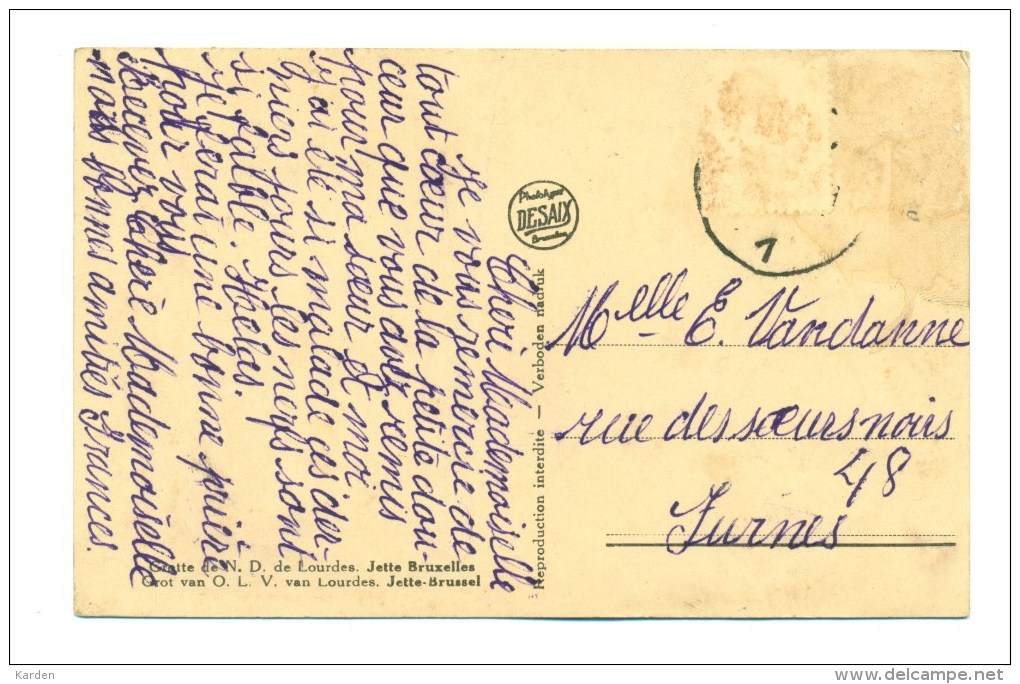 Cheri Mademoiselle
Je vous remercie de
tout cœur de la petite dou-
ceur que vous avez remis
pour ma sœur & moi
j'ai été si malade ces der-
niers jours les nerfs sont
si faible. Helas.
Je ferai une bonne prière
pour vous
Recevez chere Mademoiselle
mais bonnes amitiés Frances.
Photo
DESAIX
Bruxelles
1
Melle E. Vandanne
rue des sœurs noirs
48
Furnes
Reproduction interdite — Verboden nadruk
Grotte de N. D. de Lourdes. Jette Bruxelles
Grot van O. L. V. van Lourdes. Jette-Brussel
Karden
www.delcampe.net